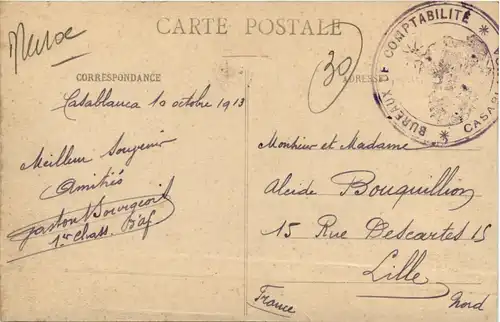 Maroc
CARTE POSTALE
30
BUREAUX DE COMPTABILITÉ
CORRESPONDANCE
ADRESSE
Casablanca 10 octobre 1913
Meilleur Souvenir
Amitiés
Gaston Bourgeois
1er Chass. d'Af
Monsieur et Madame
Alcide Bouquillion
15 Rue Descartes 15
Lille
France
Nord